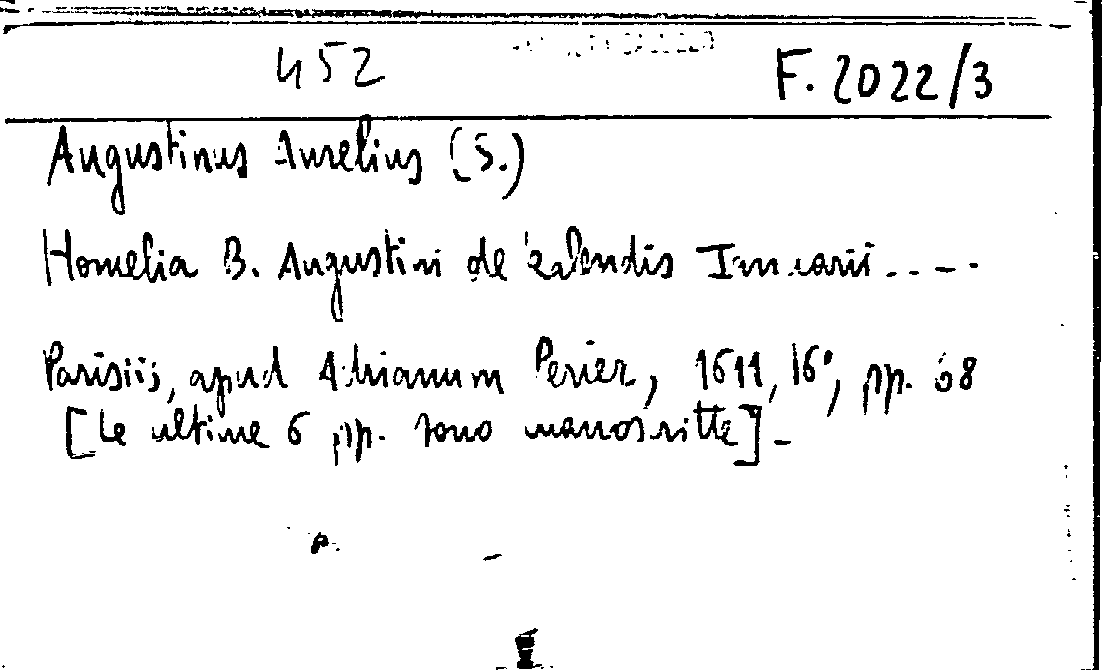 452 F. 2022/3
Augustinus Aurelius (S.)
Homelia B. Augustini de Kalendis Ianuarii ....
Parisiis, apud Adrianum Perier, 1611, 16°, pp. 68
[Le ultime 6 pp. sono manoscritte] -